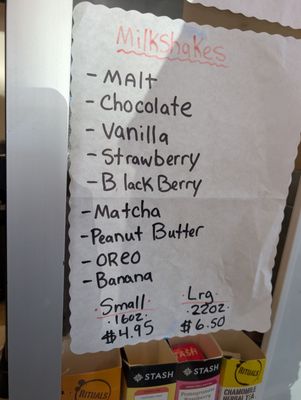 Milkshakes
- MALT
- Chocolate
- Vanilla
- Strawberry
- BlackBerry
- Matcha
- Peanut Butter
- OREO
- Banana
Small Lrg
16oz. 22oz
$4.95 $6.50
RITUALS
STASH
STASH
RITUALS
CHAMOMILE